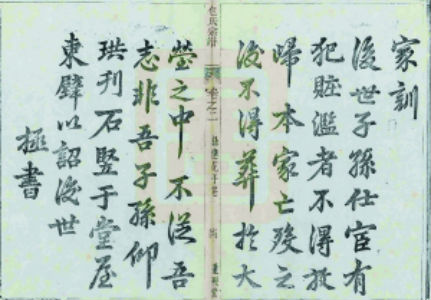 家訓
後世子孫仕宦有
犯賍濫者不得放
歸本家亡殁之
後不得葬於大
包氏宗譜
卷之二
塋之中不從吾
志非吾子孫仰
珙刊石豎于堂屋
東壁以詔後世
拯書